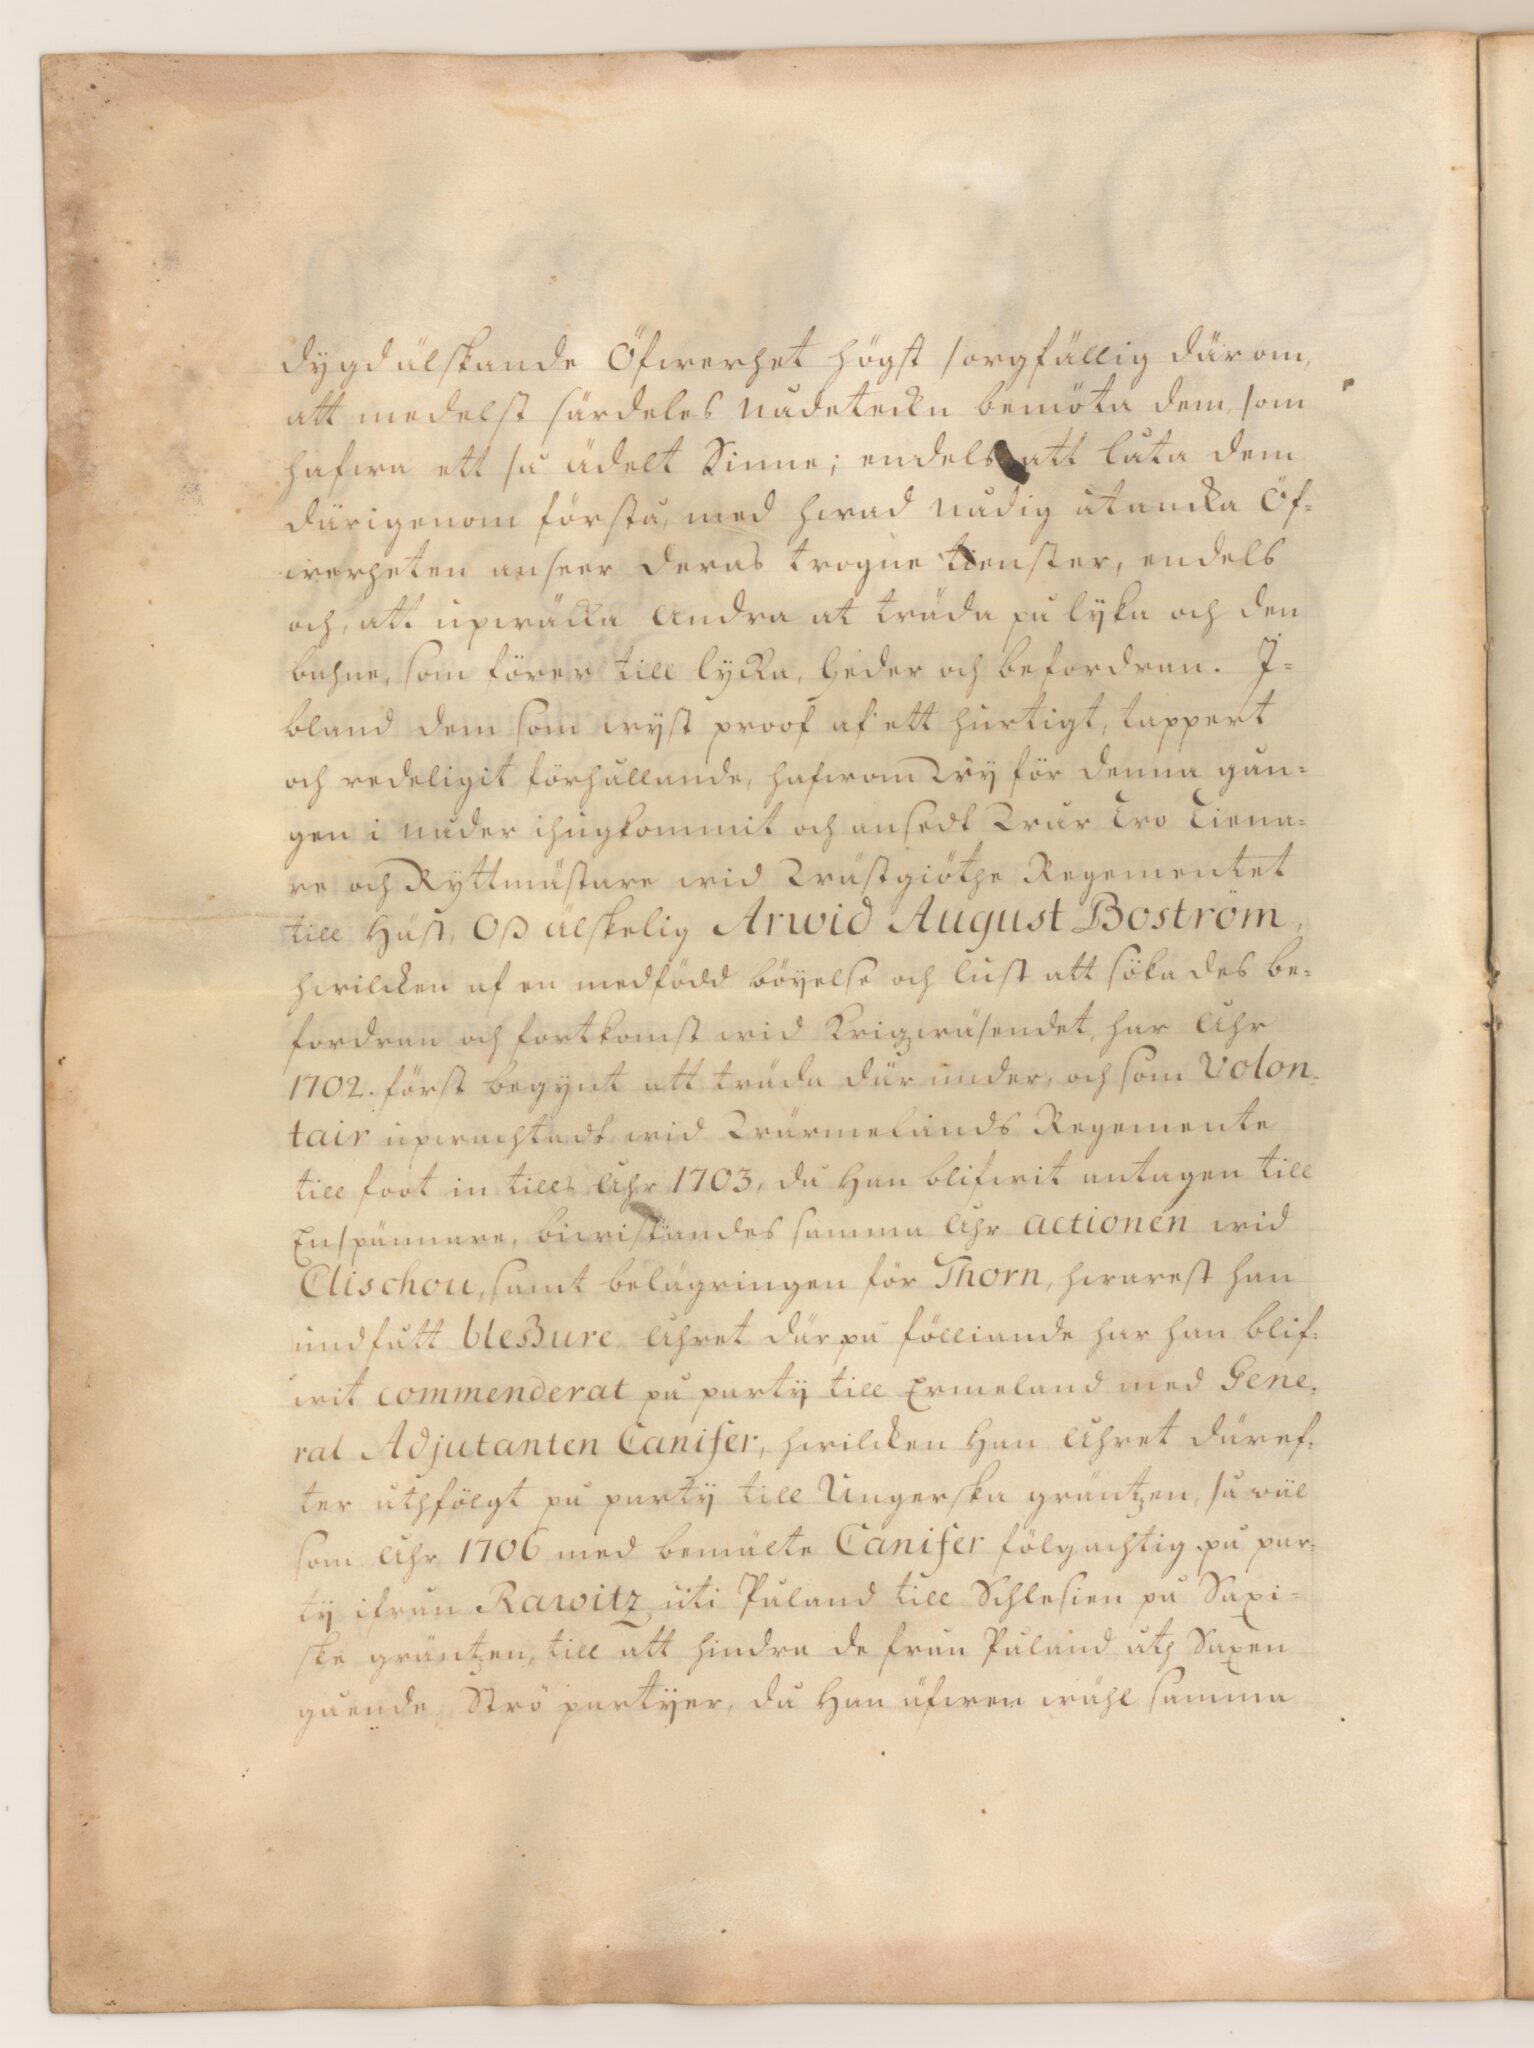 dygdälskande Öfwerhet högst sorgfällig därom,
att medelst särdeles nådeteckn bemöta dem, som
hafwa ett så ädelt Sinne; endels att låta dem
därigenom förstå, med hwad nådig åtancka Öf-
werheten anseer deras trogne tienster, endels
och, att upwäcka andra at träda på lyka och den
bahne, som förer till lycka, heder och befordran. I-
bland dem som wyst proof af ett hurtigt, tappert
och redeligit förhållande, hafwom Wÿ för denna gån-
gen i nåder ihugkommit och ansedt Wår Tro Tiena-
re och Ryttmästare wid Wästgiöthe Regementet
till Häst, Oß älskelig Arwid August Boström,
hwilcken af en medfödd böyelse och lust att söka des be-
fordran och fortkomst wid Krigzwäsendet, har Åhr
1702. först begynt att träda där under, och som Volon-
tair upwachtadt wid Wärmelands Regemente
till foot in till Åhr 1703, då Han blifwit antagen till
Enspännare, biwistandes samma Åhr actionen wid
Clischou, samt belägringen för Thorn, hwarest han
undfått bleßure, Åhret där på fölliande har han blif-
wit commenderat på partÿ till Ermeland med Gene-
ral Adjutanten Canifer, hwilcken Han Åhret däref-
ter uthfölgt på partÿ till Ungerska gräntzen, så wäl
som Åhr 1706 med bemälte Canifer fölgachtig på par-
tÿ ifrån Rawitz uti Påland till Schlesien på Saxi-
ske gräntzen, till att hindra de från Påland uth Saxen
gående Strö partÿer, då Han äfwen wähl samma